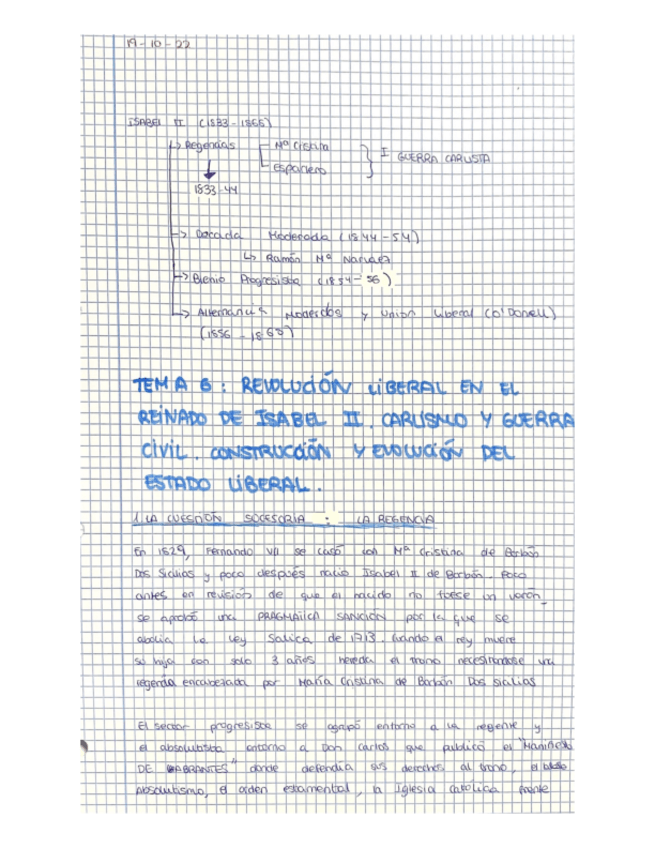 19-10-22
ISABEL II (1833-1868)
↳ Regencias [ Mª Cristina } I GUERRA CARLISTA
Espartero
1833-44
→ Decada Moderada (1844-54)
↳ Ramón Mª Narvaez
→ Bienio Progresista (1854-56)
→ Alternancia Moderdos y Union Liberal (O'Donell)
(1856-1868)
TEMA 6: REVOLUCIÓN LIBERAL EN EL
REINADO DE ISABEL II. CARLISMO Y GUERRA
CIVIL. CONSTRUCCIÓN Y EVOLUCIÓN DEL
ESTADO LIBERAL.
1. LA CUESTION SOCESORIA : LA REGENCIA
En 1829, Fernando VII se casó con Mª Cristina de Borbón
Dos Sicilias y poco después nacio Isabel II de Borbón. Poco
antes en revisión de que el nacido no fuese un varón
se aprobó una PRAGMATICA SANCION por la que se
abolia la ley Salica de 1713. Cuando el rey muere
su hija con solo 3 años hereda el trono necesitandose una
regencia encabezada por María Cristina de Borbón Dos Sicilias
El sector progresista se agrupó entorno a la regente y
el absolutista entorno a Don Carlos que publicó es "MANIFIESTO
DE ABRANTES" donde defendia sus derechos al trono, el
Absolutismo, el orden estamental, la Iglesia Catolica frente